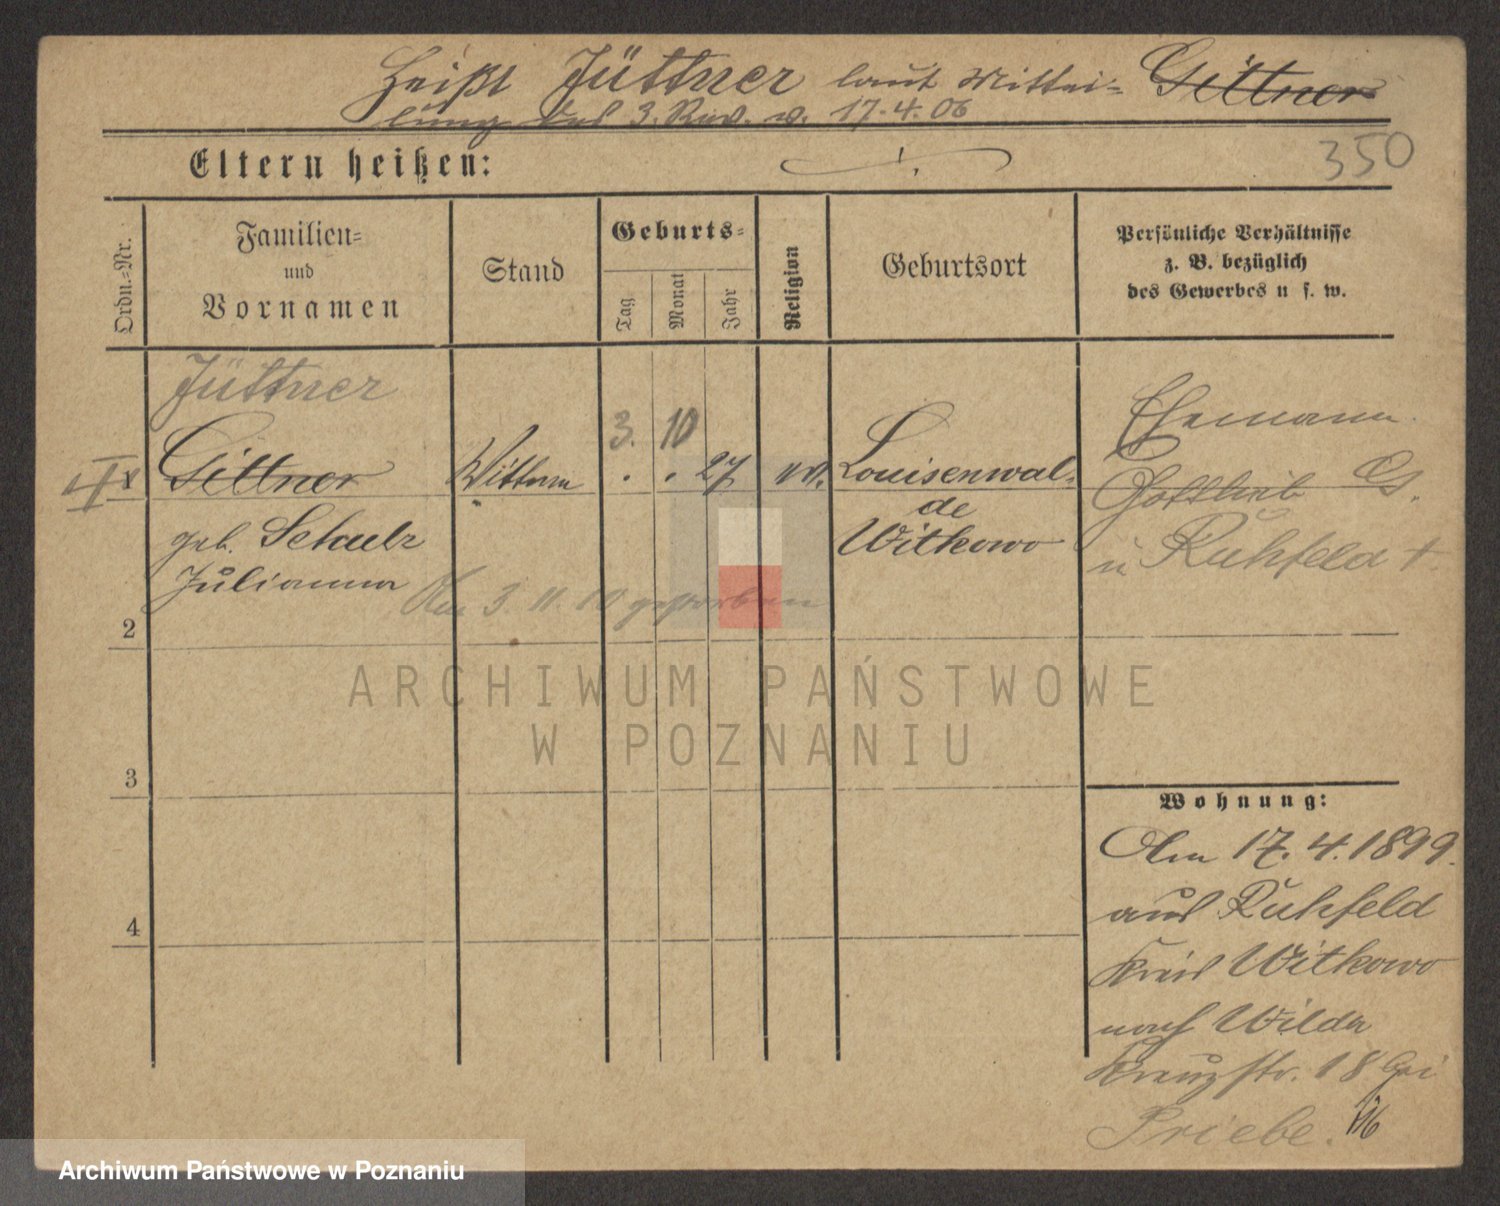 Heißt Jüttner laut Mittei= Gittner
lung des 3. Rev. v. 17.4.06
Eltern heißen:
350
Ordn.=Nr.
Familien=
und
Vornamen
Stand
Geburts=
Tag
Monat
Jahr
Religion
Geburtsort
Persönliche Verhältnisse
z. B. bezüglich
des Gewerbes u s. w.
Jüttner
Gittner
geb. Schulz
Julianna
Wittwe
3. 10
27
ev.
Louisenwal=
de
Witkowo
Ehemann
Gottlieb G.
in Ruhfeld †.
Am 3. 11. 10 gestorben
2
3
4
ARCHIWUM PAŃSTWOWE
W POZNANIU
Wohnung:
Am 17. 4. 1899.
aus Ruhfeld
Kreis Witkowo
nach Wilda
Kreuzstr. 18 bei
Priebe.
Archiwum Państwowe w Poznaniu